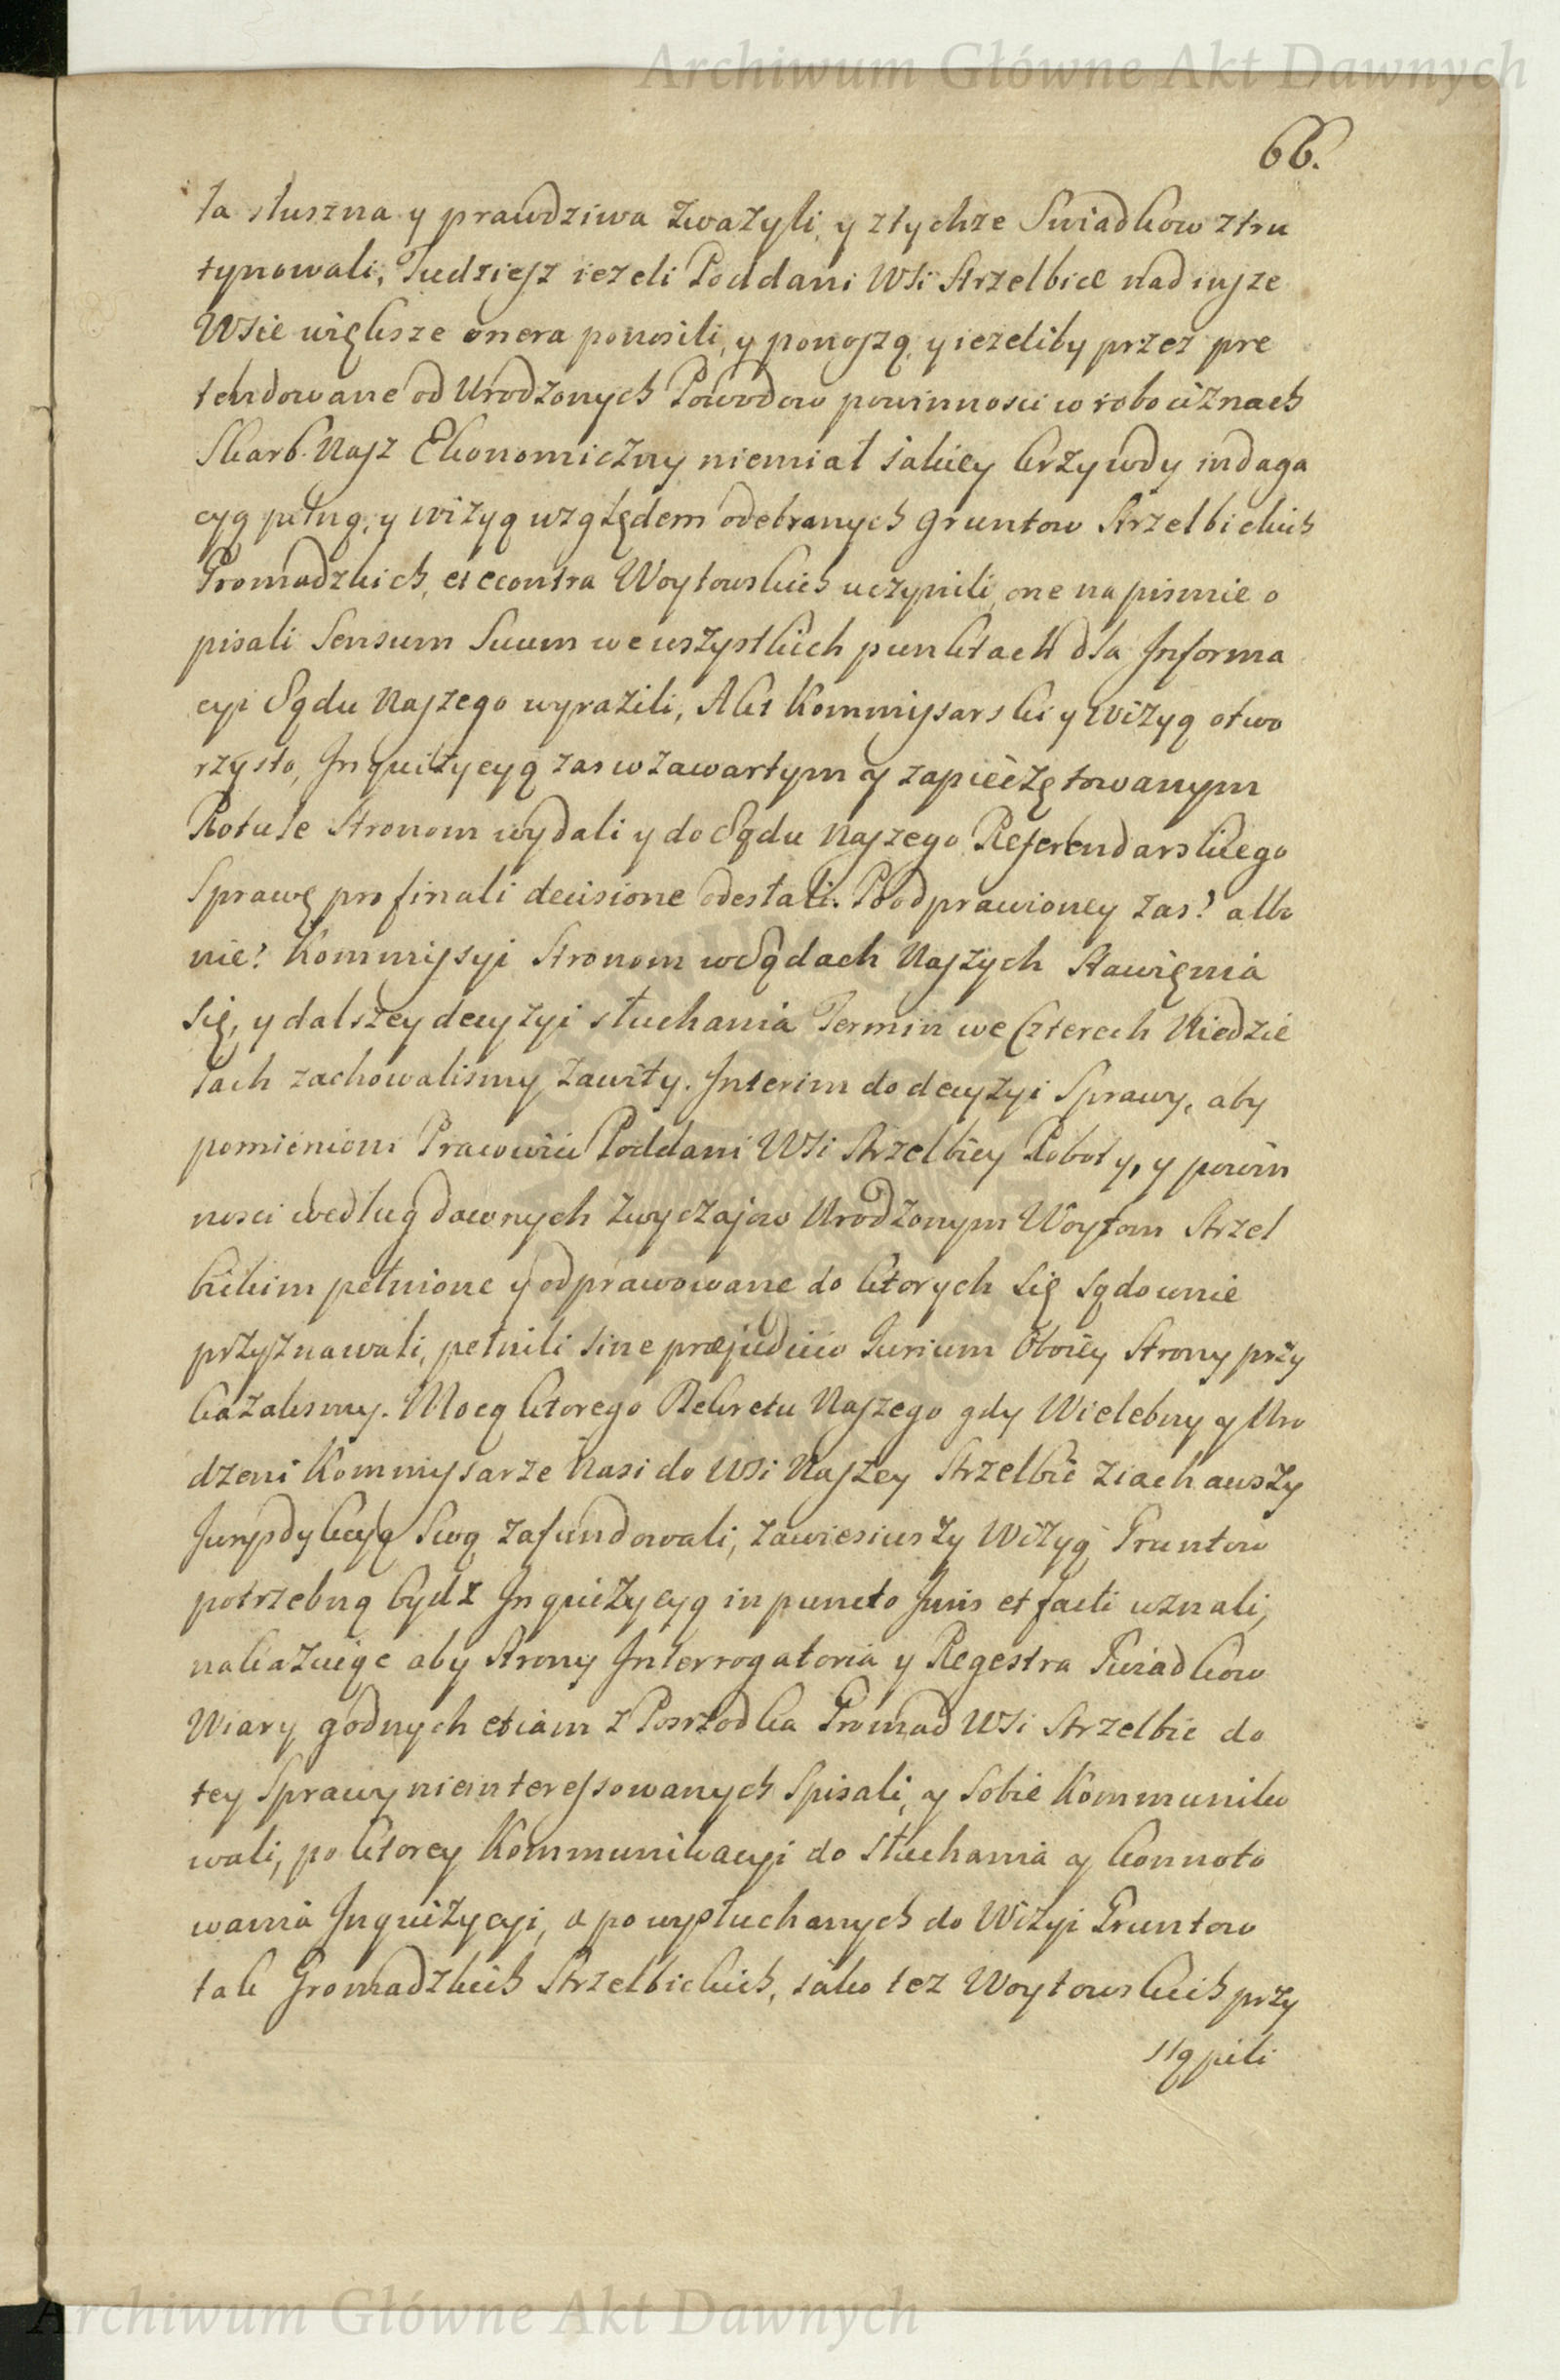 Archiwum Główne Akt Dawnych
66.
ta słuszna y prawdziwa zważyli, y ztychże Swiadkow ztru
tynowali, Tudziesz ieżeli Poddani Wsi Strzelbice nad insze
Wsie większe onera ponosili, y ponoszą, y ieżeliby przez pre
tendowane od Urodzonych Powodow powinnosci w robociżnach
Skarb Nasz Ekonomiczny niemiał iakiey krzywdy indaga
cyą pełną, y wizyą względem odebranych gruntow Strzelbickich
Gromadzkich, et econtra Woytowskich uczynili, one na pismie o
pisali Sensum Suum we wszystkich punktach dla Informa
cyi Sądu Naszego wyrazili, Akt Kommissarski y wizyą otwo
rzysto, Inquizycyą zas w zawartym y zapieczętowanym
Rotule Stronom wydali y do Sądu Naszego Referendarskiego
Sprawę pro finali decisione odesłali. Po odprawioney zas? albo
nie? Kommissyi Stronom w Sądach Naszych Stawienia
się, y dalszey decyzyi słuchania Termin we Czterech Niedzie
lach zachowalismy zawity. Interim do decyzyi Sprawy, aby
pomienioni Pracowici Poddani Wsi Strzelbicy Roboty, y powin
nosci według dawnych zwyczajow Urodzonym Woytom Strzel
bickim pełnione y odprawowane do ktorych się sądownie
przyznawali, pełnili sine præjudicio Jurium Oboiey Strony przy
kazalismy. Mocą ktorego Dekretu Naszego gdy Wielebny y Uro
dzeni Kommissarze Nasi do Wsi Naszey Strzelbic ziachawszy
Jurysdykcyą Swą zafundowali, zawiesiwszy Wizyą Gruntow
potrzebną bydz Inquizycyą in puncto Juris et facti uznali,
nakazuiąc aby Strony Interrogatoria y Regestra Swiadkow
Wiary godnych etiam z Posrzodka Gromad Wsi Strzelbic do
tey Sprawy nieinteressowanych Spisali, y Sobie Kommuniko
wali, po ktorey Kommunikacyi do słuchania y konnoto
wania Inquizycyi, a po wysłuchanych do Wizyi Gruntow
tak Gromadzkich Strzelbickich, iako też Woytowskich przy
stąpili
Archiwum Główne Akt Dawnych